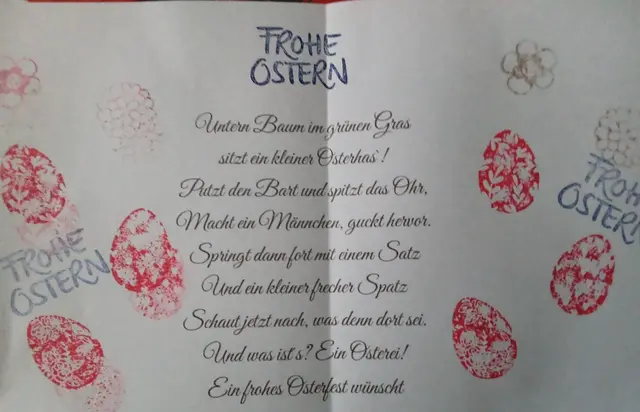 FROHE
OSTERN
Untern Baum im grünen Gras
sitzt ein kleiner Osterhas`!
Putzt den Bart und spitzt das Ohr,
Macht ein Männchen, guckt hervor.
Springt dann fort mit einem Satz
Und ein kleiner frecher Spatz
Schaut jetzt nach, was denn dort sei.
Und was ist`s? Ein Osterei!
Ein frohes Osterfest wünscht
FROHE
OSTERN
FROH
OSTERN